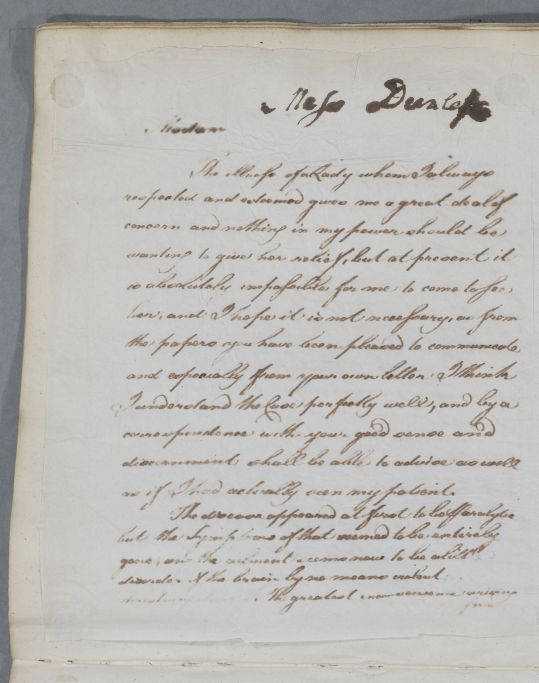 Miss Dunlop
Madam
The illness of a Lady whom I always
respected and esteemed gives me a great deal of
concern and nothing in my power should be
wanting to give her relief, but at present it
is absolutely impossible for me to come to see
her, and I hope it is not necessary, as from
the papers you have been pleased to communicate
and especially from your own letter I think
I understand the Case perfectly well, and by a
correspondence with your good sense and
discernment shall be able to advise as well
as if I had actually seen my patient.
The disease appeared at first to be Paralytic
but the Symptoms of that seemed to be entirely
gone, and the ailment seems now to be a little
disorder of the brain by no means violent
The greatest inconvenience arising
from